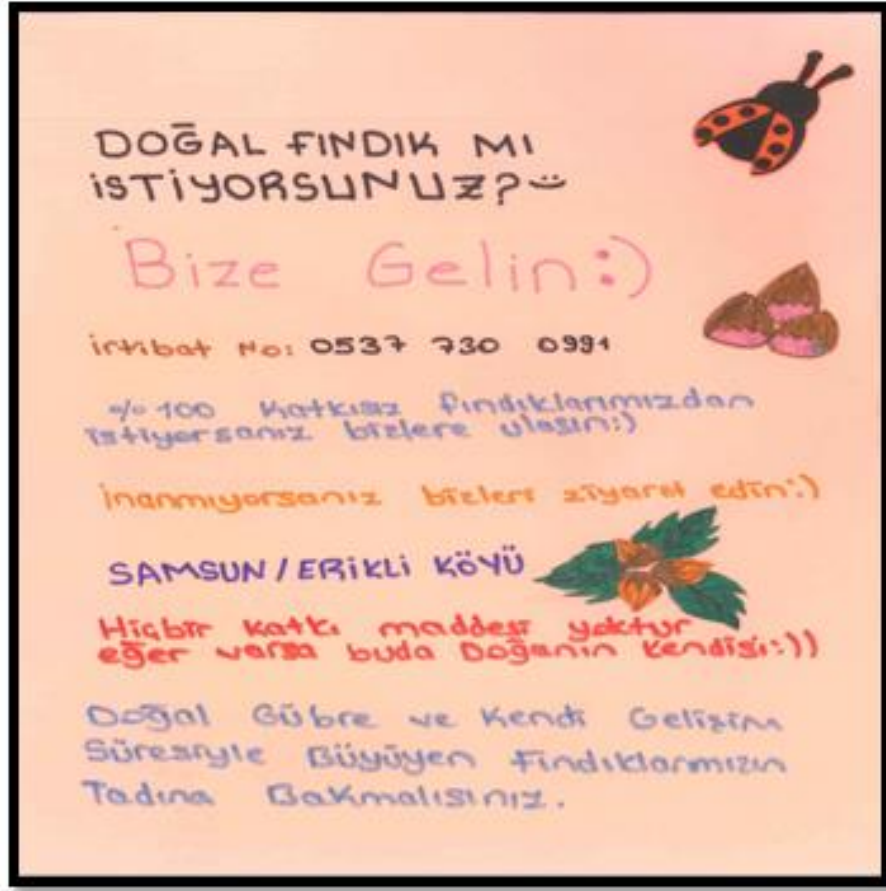 DOĞAL FINDIK MI
iSTiYORSUNUZ?
Bize Gelin:)
irtibat No: 0537 730 0991
%100 Katkısız fındıklarımızdan
istiyorsanız bizlere ulaşın:)
inanmıyorsanız bizleri ziyaret edin:)
SAMSUN/ERiKLi KÖYÜ
Hiçbir katkı maddesi yoktur
eğer varsa buda Doğanın kendisi:))
Doğal Gübre ve Kendi Gelişim
Süresiyle Büyüyen Fındıklarımızın
Tadına Bakmalısınız.